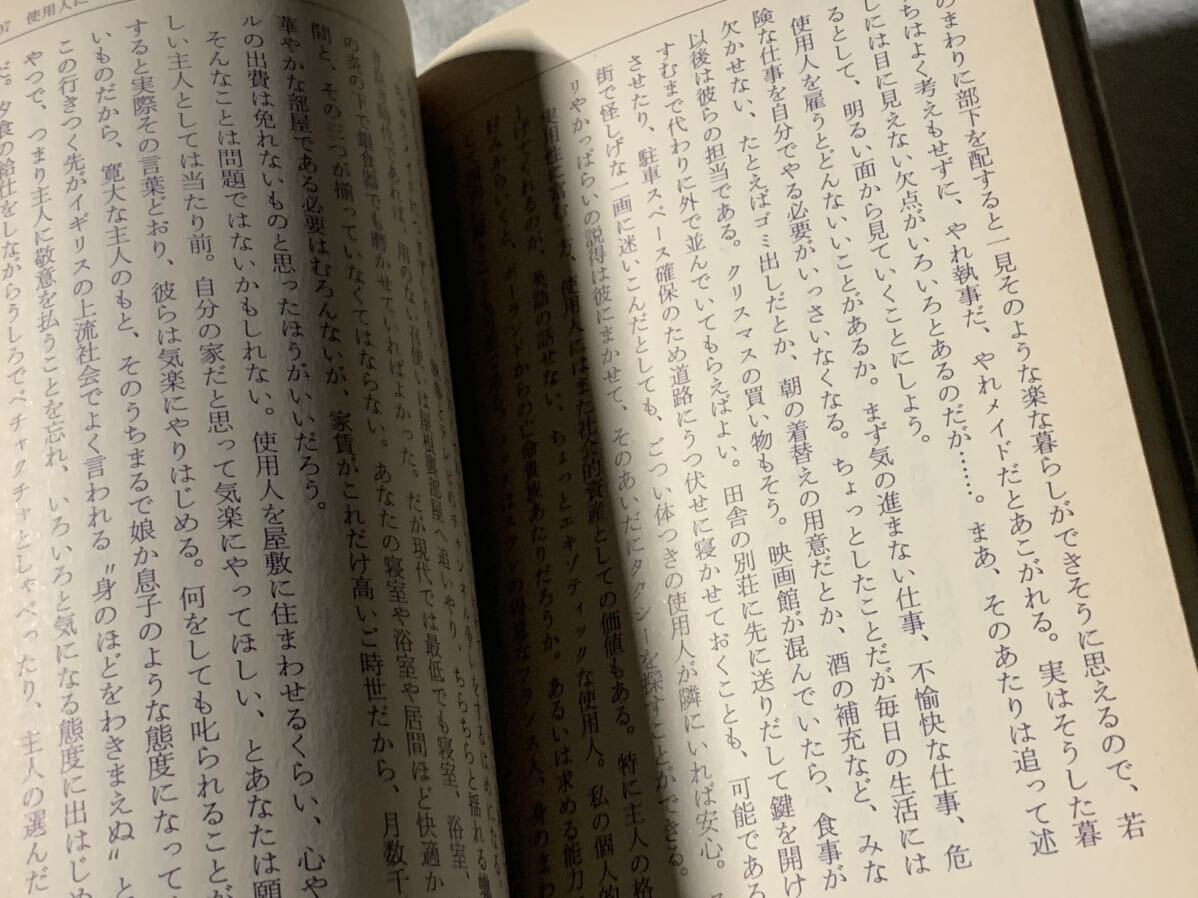 のまわりに部下を配すると一見そのような楽な暮らしができそうに思えるので、若
ちはよく考えもせずに、やれ執事だ、やれメイドだとあこがれる。実はそうした暮
しには目に見えない欠点がいろいろとあるのだが……。まあ、そのあたりは追って述
るとして、明るい面から見ていくことにしよう。
使用人を雇うとどんないいことがあるか。まず気の進まない仕事、不愉快な仕事、危
険な仕事を自分でやる必要がいっさいなくなる。ちょっとしたことだが毎日の生活には
欠かせない、たとえばゴミ出しだとか、朝の着替えの用意だとか、酒の補充など、みな
以後は彼らの担当である。クリスマスの買い物もそう。映画館が混んでいたら、食事が
すむまで代わりに外で並んでいてもらえばよい。田舎の別荘に先に送りだして鍵を開け
させたり、駐車スペース確保のため道路にうつ伏せに寝かせておくことも、可能である
街で怪しげな一画に迷いこんだとしても、ごつい体つきの使用人が隣にいれば安心。ス
リやかっぱらいの説得は彼にまかせて、そのあいだにタクシーを探すことができる。
実用性に富む一方、使用人にはまた社会的資産としての価値もある。特に主人の格
上げてくれるのが、英語の話せない、ちょっとエキゾティックな使用人。私の個人的
好みからいくと、ポーランドからの亡命貴族あたりだろうか。あるいは求める能力
スフレの得意なフランス人、身のまわ
97 使用人に
時代であれば、用のない召使いは屋根裏部屋へ追いやり、ちらちらと揺れる蠟
の炎の下で銀食器でも磨かせていればよかった。だが現代では最低でも寝室、浴室、
間と、その三つが揃っていなくてはならない。あなたの寝室や浴室や居間ほど快適か
華やかな部屋である必要はむろんないが、家賃がこれだけ高いご時世だから、月数千
ルの出費は免れないものと思ったほうがいいだろう。
そんなことは問題ではないかもしれない。使用人を屋敷に住まわせるくらい、心や
しい主人としては当たり前。自分の家だと思って気楽にやってほしい、とあなたは願
すると実際その言葉どおり、彼らは気楽にやりはじめる。何をしても叱られることが
いものだから、寛大な主人のもと、そのうちまるで娘か息子のような態度になって
この行きつく先がイギリスの上流社会でよく言われる〝身のほどをわきまえぬ〟と
やつで、つまり主人に敬意を払うことを忘れ、いろいろと気になる態度に出はじめ
だ。夕食の給仕をしながらうしろでペチャクチャとしゃべったり、主人の選んだ